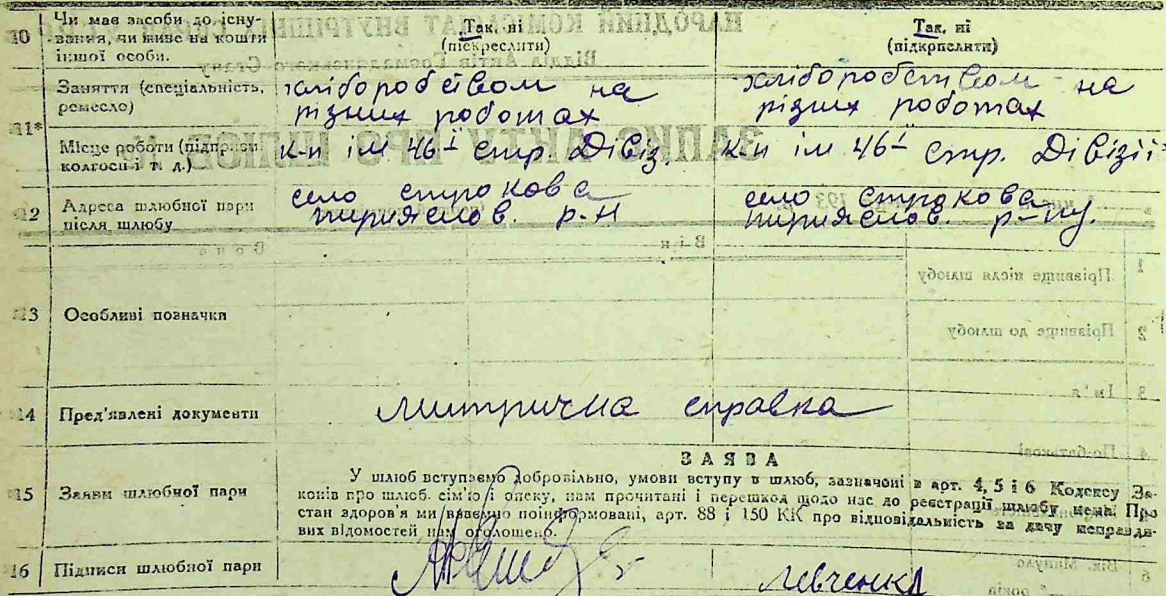 10 Чи має засоби до існу-
вання, чи живе на кошти
іншої особи.
Так, ні
(підкреслити)
Так, ні
(підкреслити)
11* Заняття (спеціальність,
ремесло)
хліборобством на
різних роботах
хліборобством на
різних роботах
Місце роботи (підприєм.
колгосп і т. д.)
к-п ім 46ї стр. Дівіз.
к-п ім 46ї стр. Дівізії
12 Адреса шлюбної пари
після шлюбу
село строкова
пирияслов. р-н
село строкова
пирияслов. р-ну.
13 Особливі позначки
14 Пред'явлені документи
митрична справка
15 Заяви шлюбної пари
ЗАЯВА
У шлюб вступаємо добровільно, умови вступу в шлюб, зазначені в арт. 4, 5 і 6 Кодексу За-
конів про шлюб, сім'ю і опеку, нам прочитані і перешкод щодо нас до реєстрації шлюбу нема. Про
стан здоров'я ми взаємно поінформовані, арт. 88 і 150 КК про відповідальність за дачу неправди-
вих відомостей нам оголошено.
16 Підписи шлюбної пари
Левченко